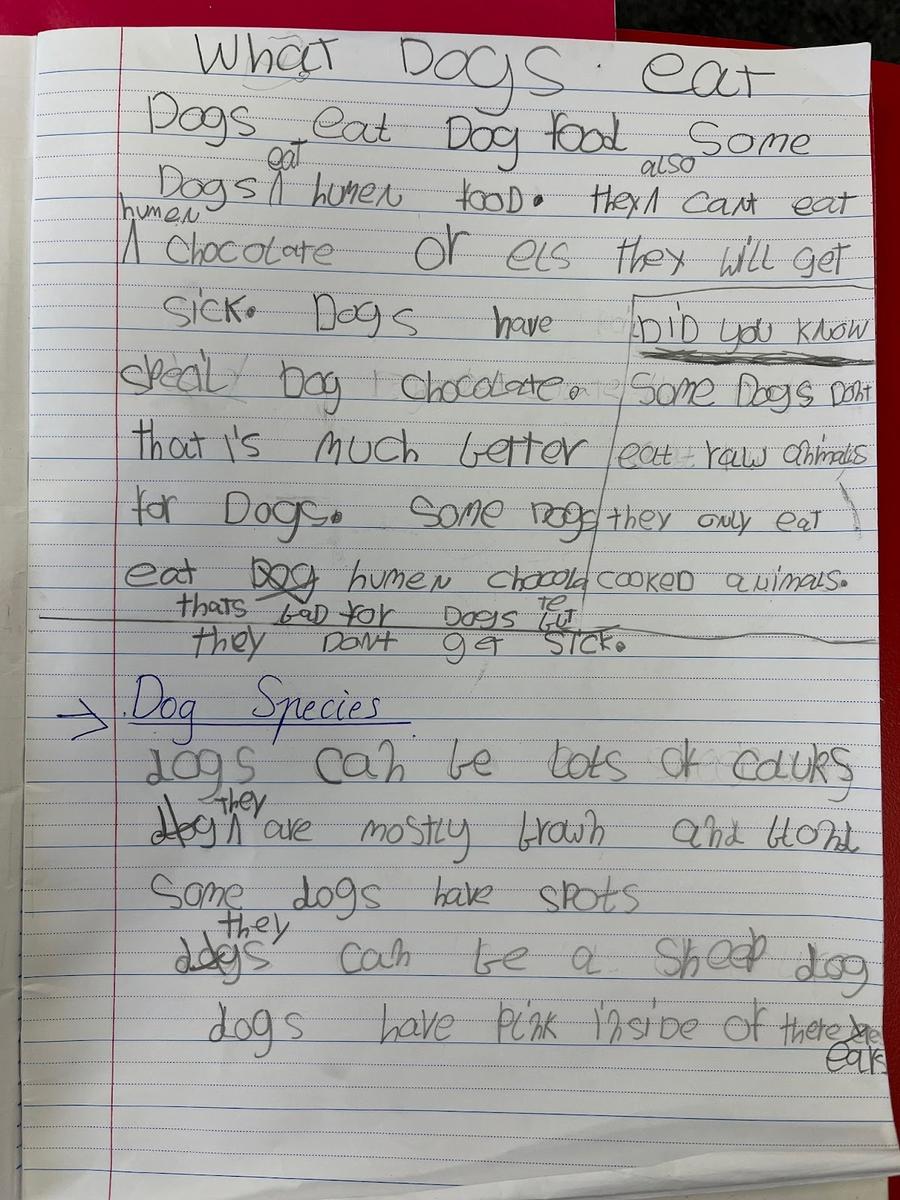 What Dogs eat
Dogs eat Dog food Some
Dogs eat humen food. they also cant eat
humen chocolate or els they will get
sick. Dogs have
speail Dog chocolate.
that is much better
for Dogs. Some Dogs
eat Dog humen chocolate
thats bad for Dogs but
they Dont get sick.
DiD you know
Some Dogs Dont
eat raw animals
they only eat
cooked animals.
Dog Species
dogs can be lots of caluks
dog they are mostly brown and blond
Some dogs have spots
ddgs they can be a sheep dog
dogs have pink inside of there
ears